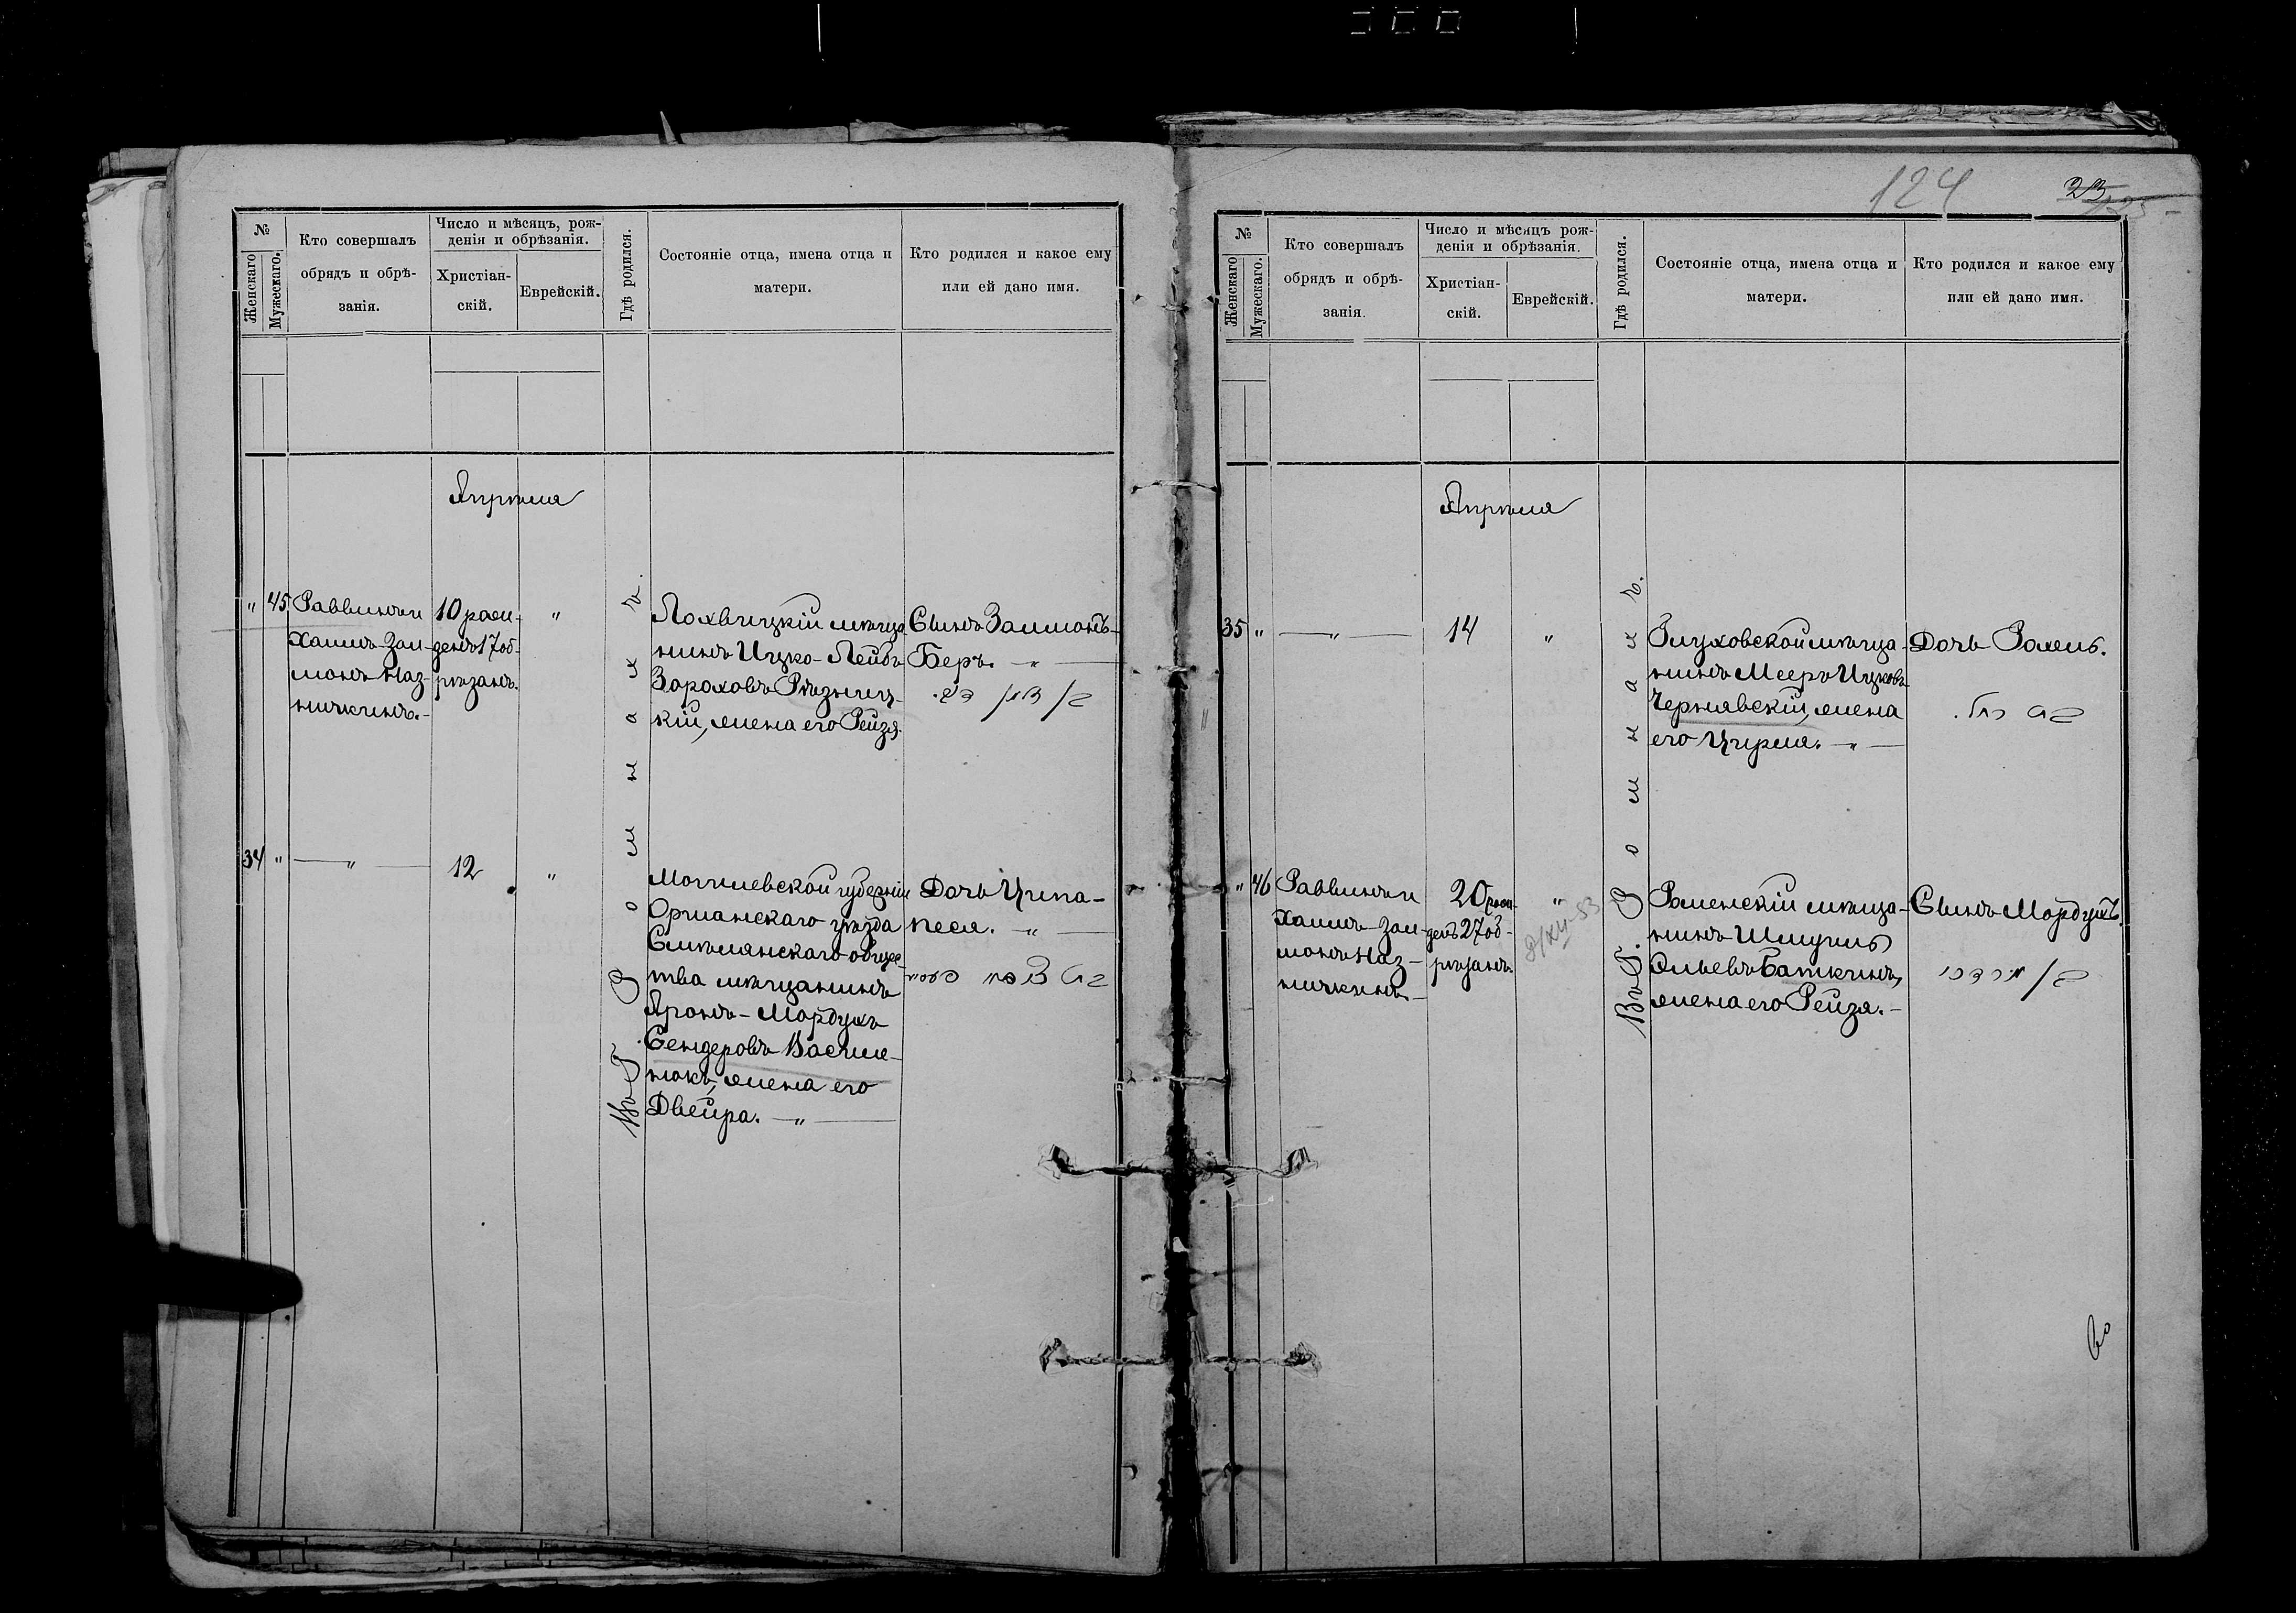 №
Женскаго
Мужескаго.
Кто совершалъ
обрядъ и обрѣ-
занія.
Число и мѣсяцъ, рож-
денія и обрѣзанія.
Христіан-
скій.
Еврейскій.
Гдѣ родился.
Состояніе отца, имена отца и
матери.
Кто родился и какое ему
или ей дано имя.
Апрѣля
" 45
Раввинъ и
Хаимъ-Зал-
монъ Наз-
ничкинъ.-
10 рож-
денъ 17 об-
рѣзанъ.
"
Въ г. Ромнахъ.
Лохвицкій мѣща-
нинъ Ицко-Лейбъ
Зораховъ Рѣзниц-
кій, жена его Рейзя.
Сынъ Залмонъ-
Беръ. — " —
34 "
— " —
12
"
Могилевской губерніи
Оршанскаго уѣзда
Смолянскаго общес-
тва мѣщанинъ
Аронъ-Мордухъ
Сендеровъ Василе-
нокъ, жена его
Двейра. — " —
Дочь Ципа-
Песя. — " —
124
23
№
Женскаго
Мужескаго.
Кто совершалъ
обрядъ и обрѣ-
занія.
Число и мѣсяцъ рож-
денія и обрѣзанія.
Христіан-
скій.
Еврейскій.
Гдѣ родился.
Состояніе отца, имена отца и
матери.
Кто родился и какое ему
или ей дано имя.
Апрѣля
35 "
— " —
14
"
Въ г. Ромнахъ.
Глуховской мѣща-
нинъ Мееръ Ицковъ
Чернявскій, жена
его Цирля. — " —
Дочь Рахель.
בת רחל.
" 46
Раввинъ и
Хаимъ-Зал-
монъ Наз-
ничкинъ.-
20 рож-
денъ 27 об-
рѣзанъ.
"
Роменскій мѣща-
нинъ Шмуиль
Эльевъ Баткинъ,
жена его Рейзя.-
Сынъ Мордухъ.
בן מרדכי